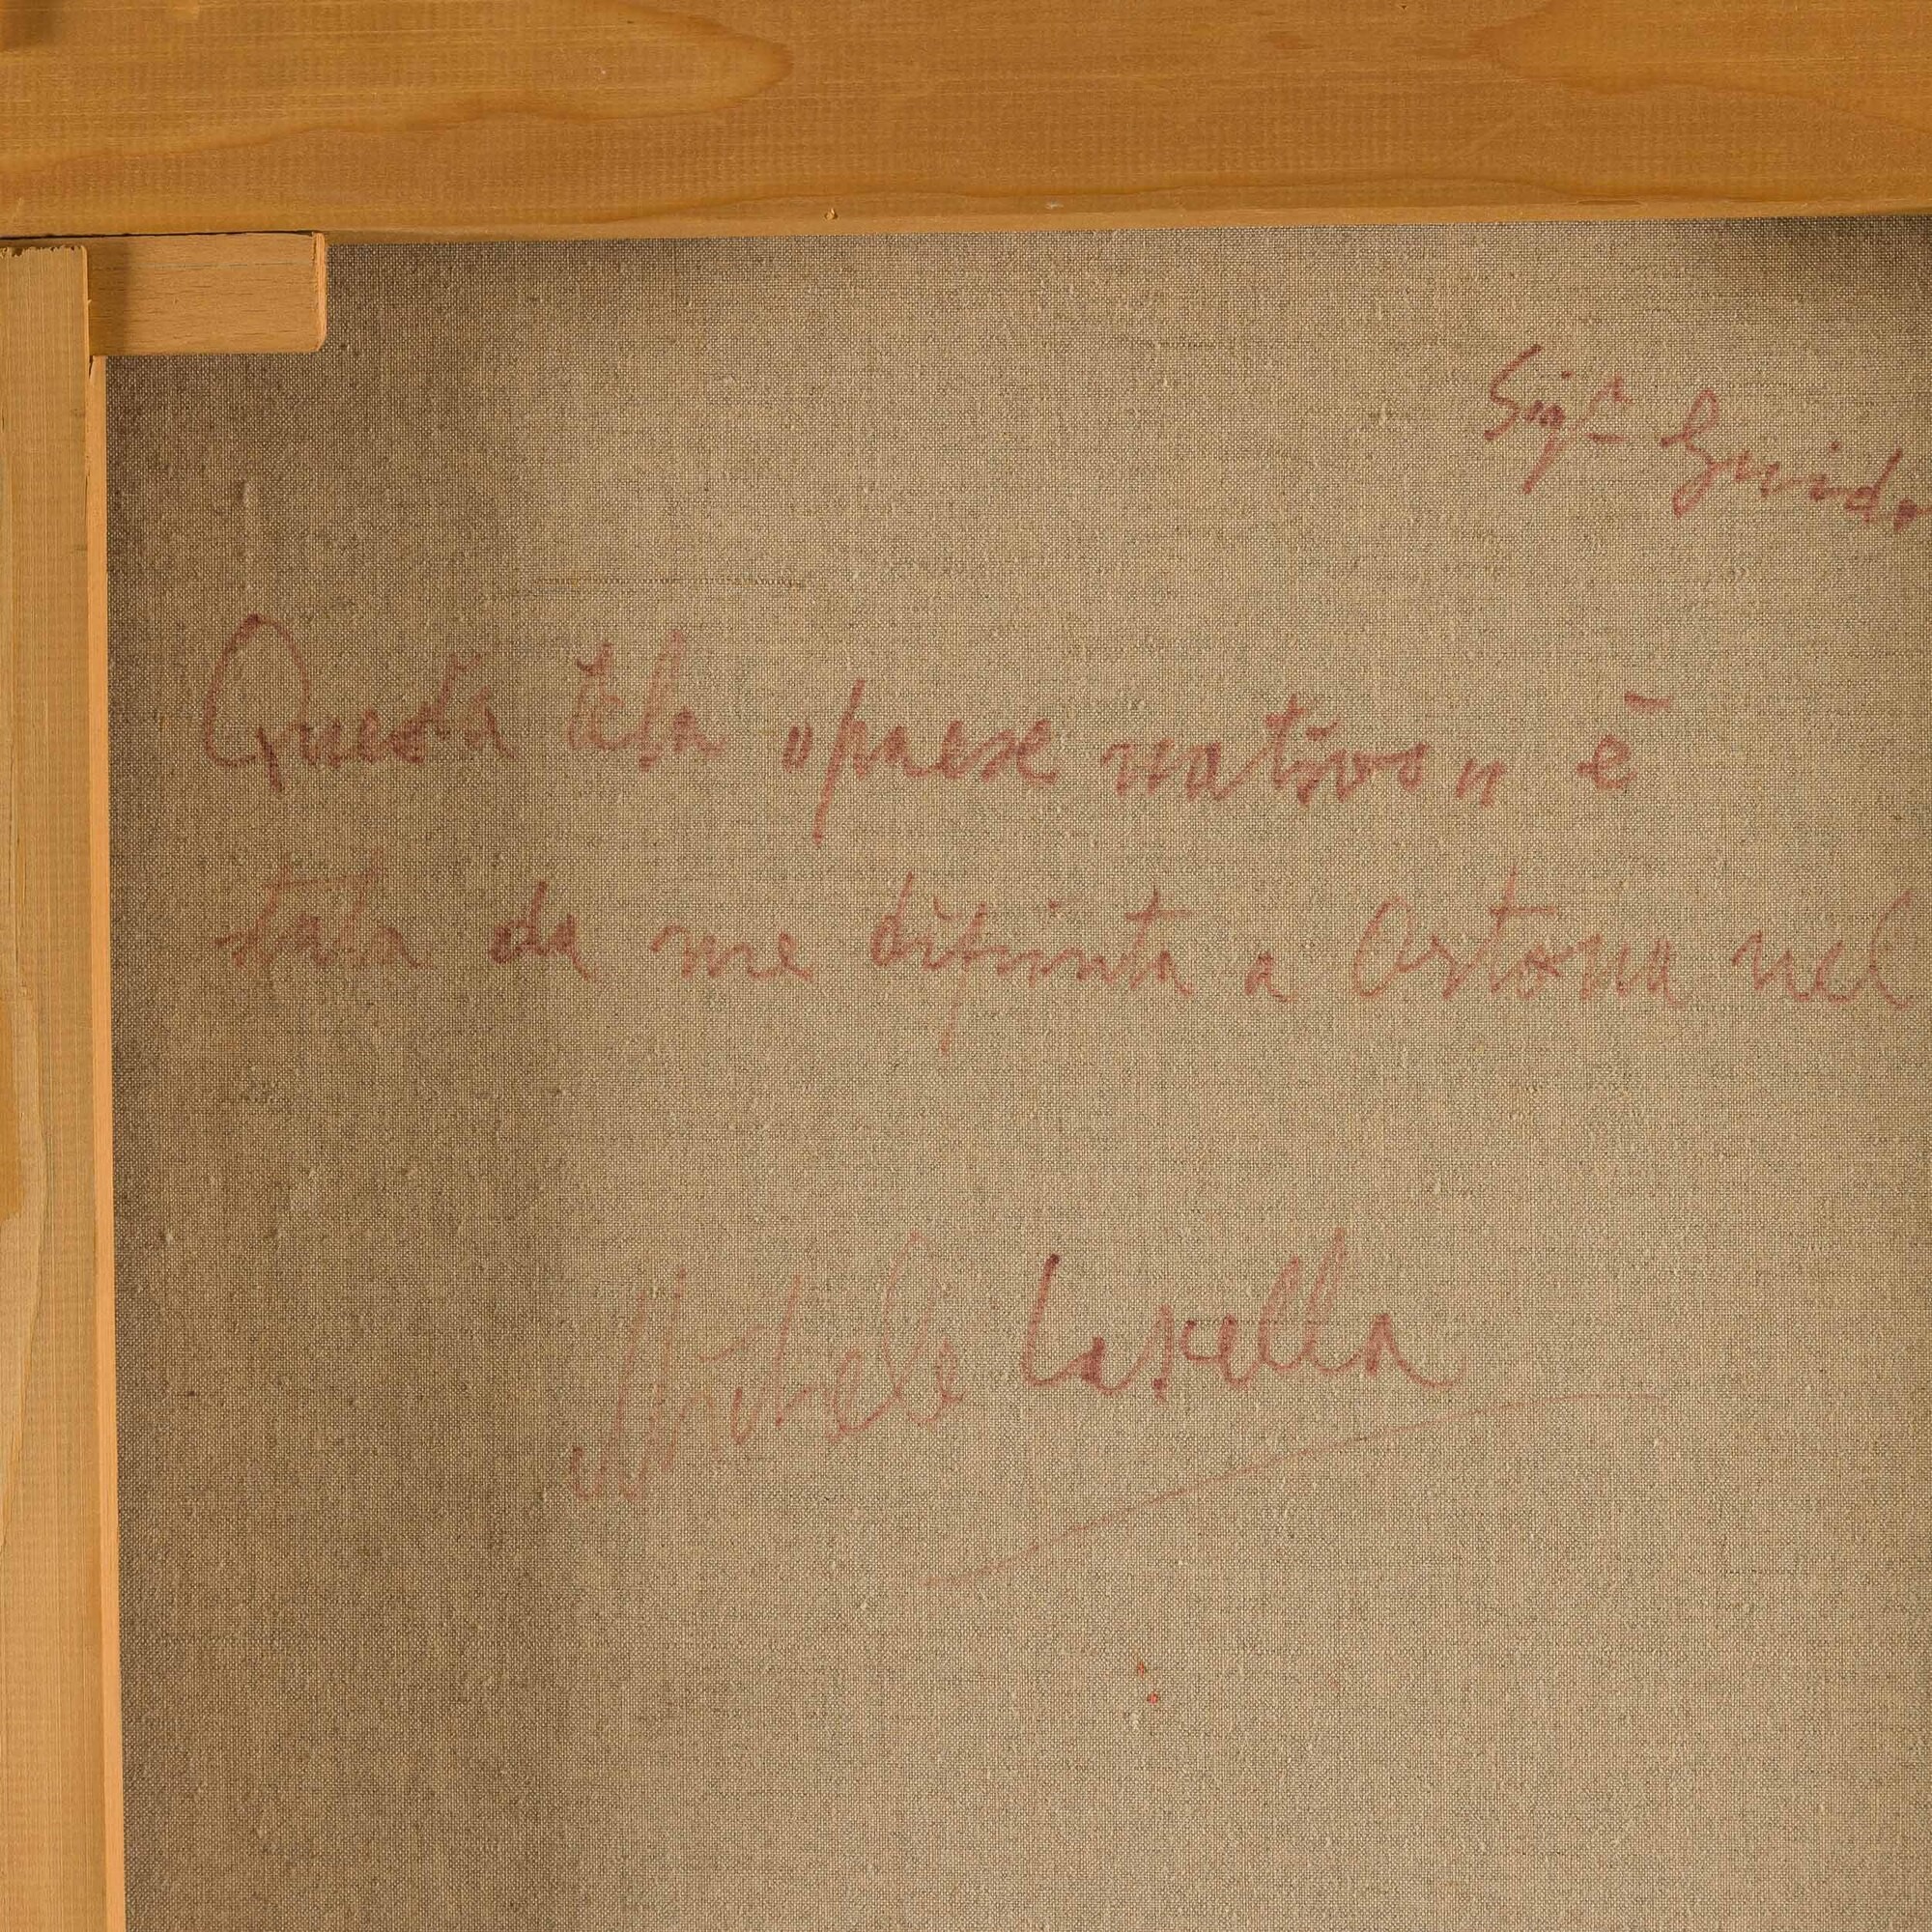 Sig.ra Guido
Questa tela "paese nativo" è
stata da me dipinta a Ortona nel
Michele Cascella